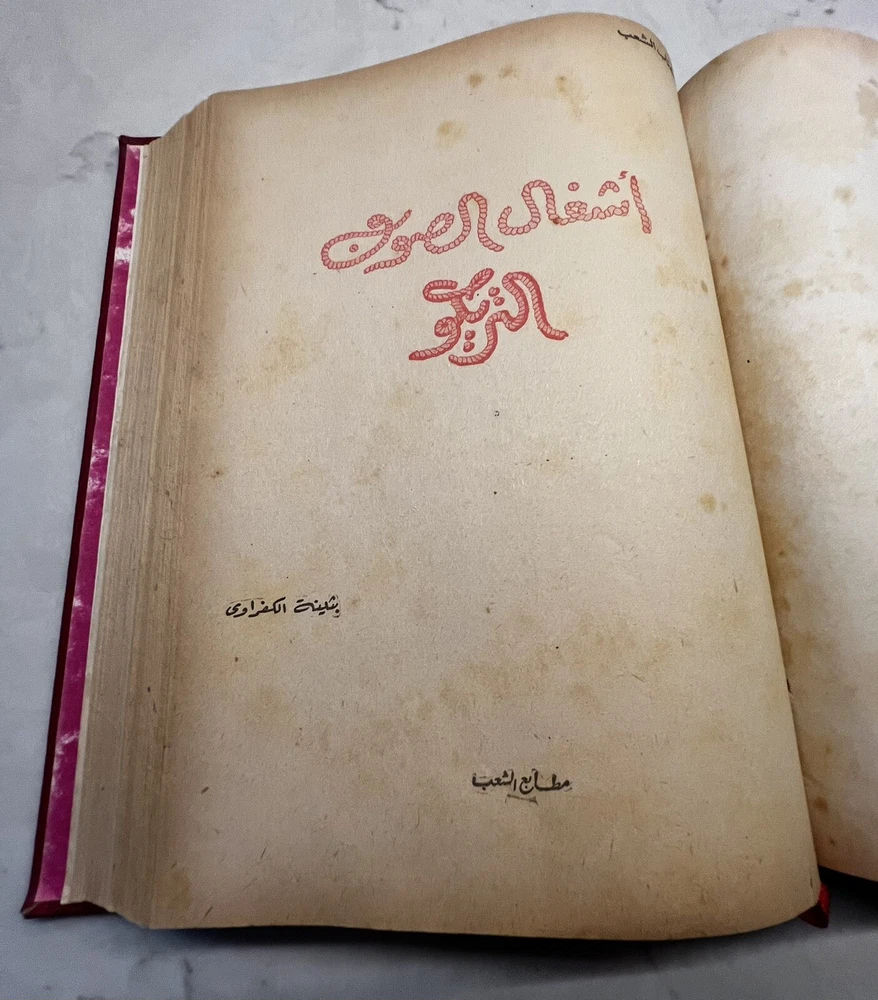 الشعب
أشغال الصوف
التريكو
بثينة الكفراوى
مطابع الشعب